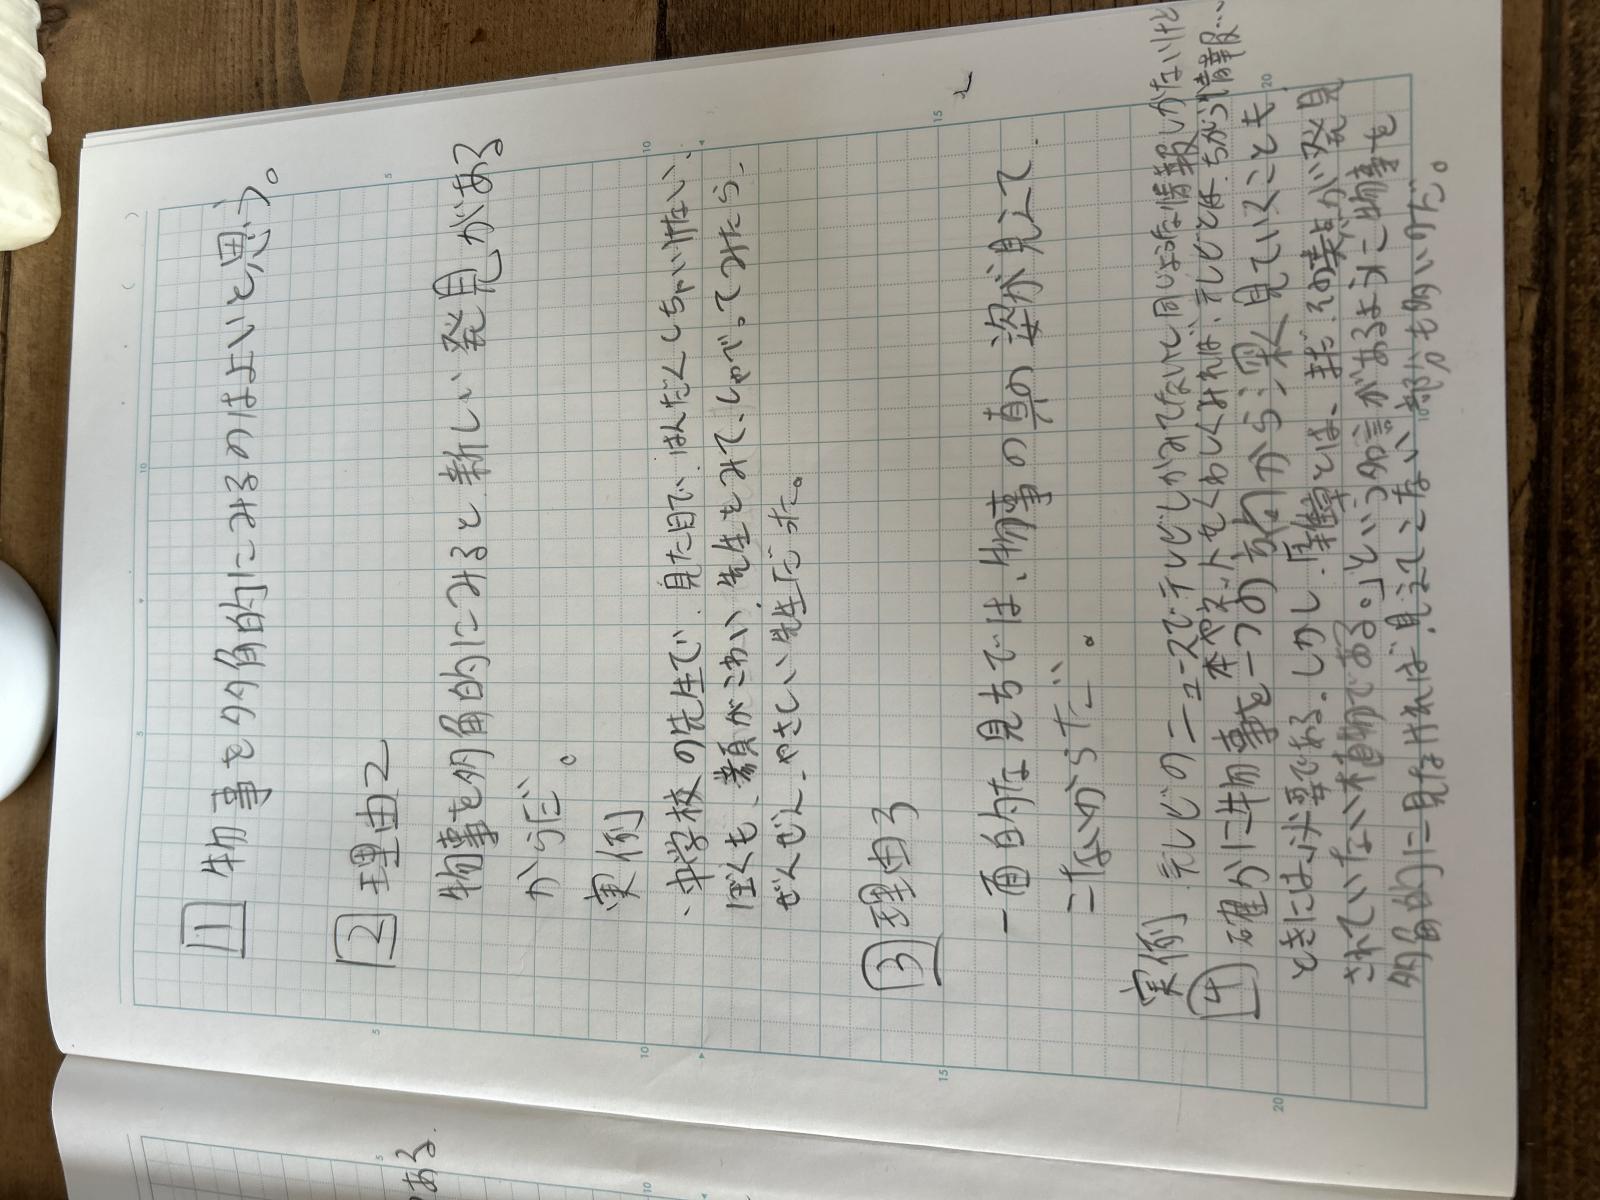 1 物事を多角的にみるのはよいと思う。
2 理由2
物事を多角的にみると新しい発見がある
からだ。
実例
・中学校の先生で、見た目で、はんだんしちゃいけない、
ぼくも、素顔がこわい、先生をみて、しゃべってみたら、
ぜんぜん、やさしい先生だった。
3 理由3
一面的な見ちでは、物事の真の姿が見えて
こないからだ。
実例 テレビのニュースでテレビしかみてないと同じような情報しかないけど
本やネットをくわしくみれば、テレビとは、ちがう情報…
4 確かに物事を一つの方向から深く見ていくことも
ときには必要である。しかし「雑草とは、まだその美点が発見
されていない植物である。」という名言があるように物事を
多角的に見なければ見えてこない部分も多いのだ。
ある.